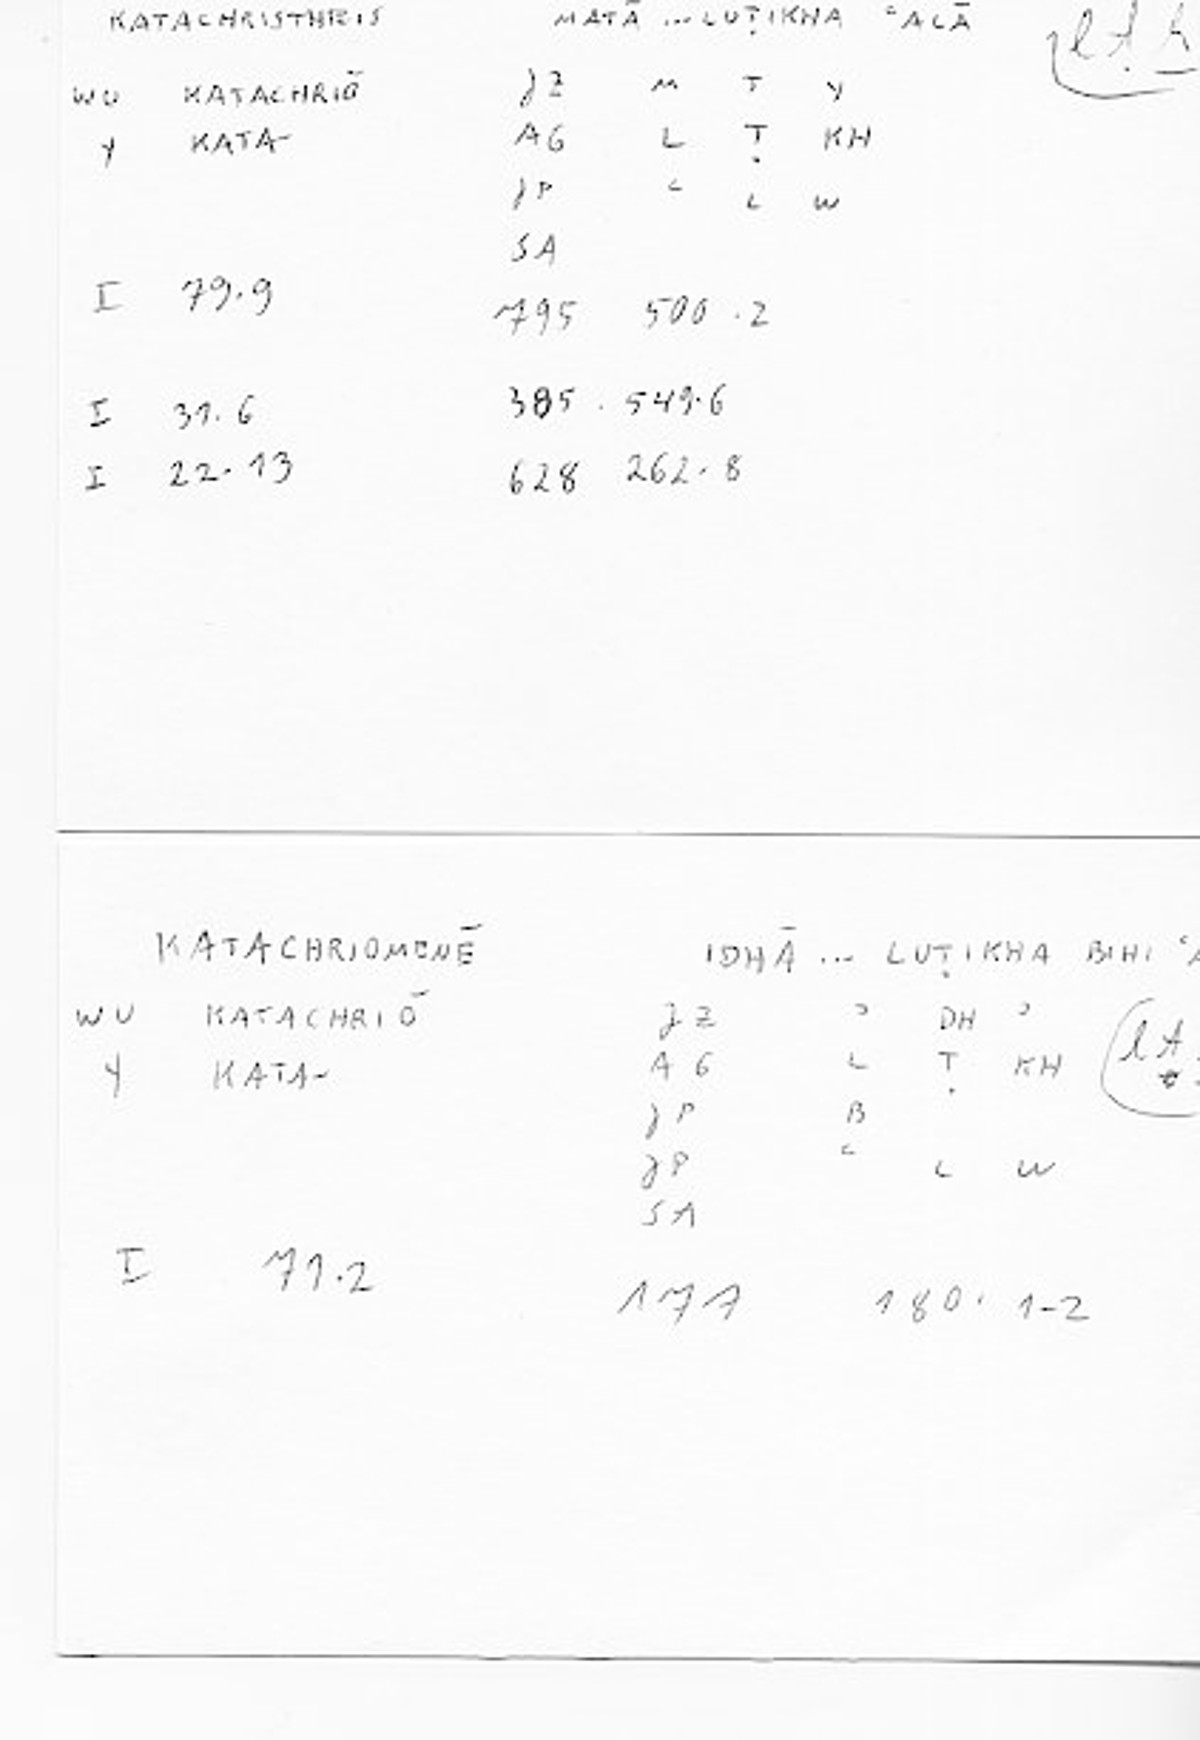 KATACHRISTHEIS MATĀ ... LUṬIKHA ʿALĀ lṭḫ
WU KATACHRIŌ JZ M T Y
Y KATA- AG L Ṭ KH
JP ʿ L W
SA
I 79.9 795 500.2
I 31.6 385.549.6
I 22.13 628 262.8
KATACHRIOMENĒ IDHĀ ... LUṬIKHA BIHI
WU KATACHRIŌ JZ ʾ DH ʾ
Y KATA- AG L Ṭ KH lṭ
JP B
JP ʿ L W
SA
I 71.2 171 180.1-2